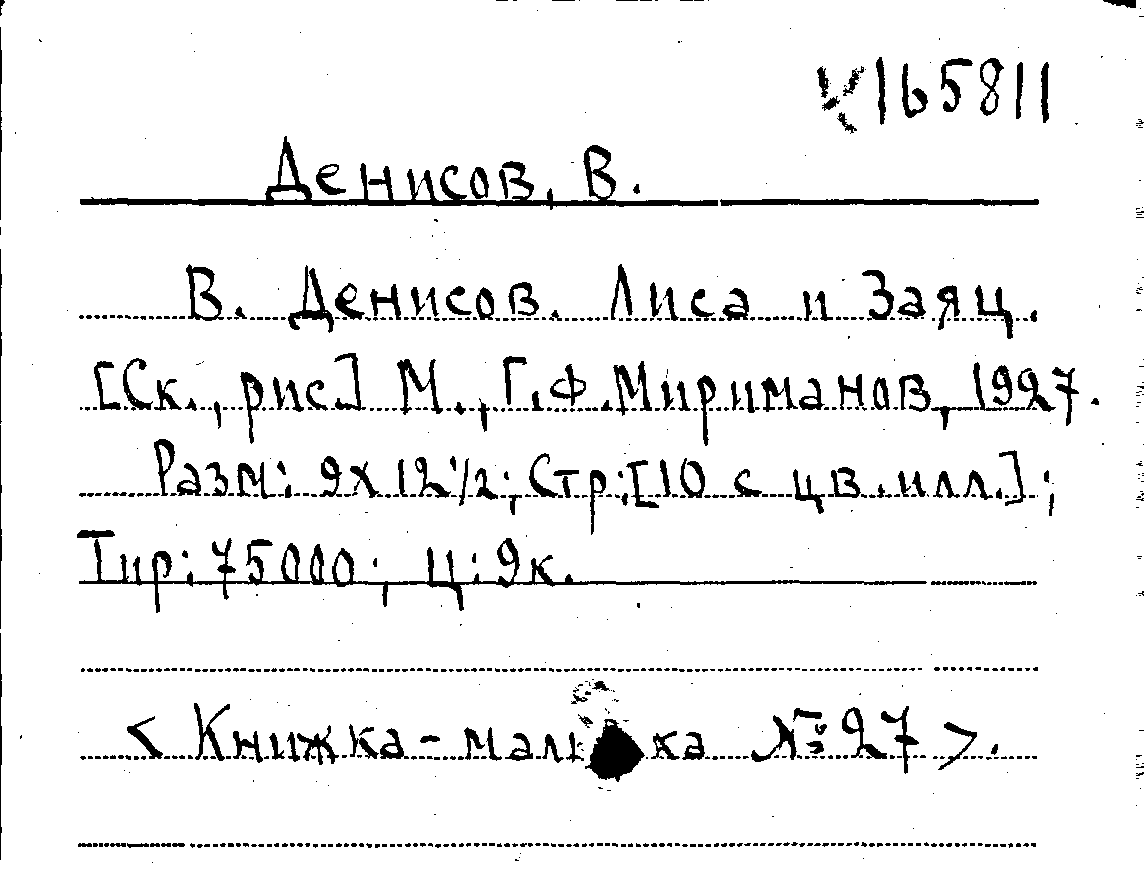 К165811
Денисов, В.
В. Денисов. Лиса и Заяц.
[Ск., рис.] М., Г.Ф.Мириманов, 1927.
Разм: 9х12 1/2; Стр:[10 с цв.илл.];
Тир: 75000; Ц: 9к.
< Книжка- № 27 >.